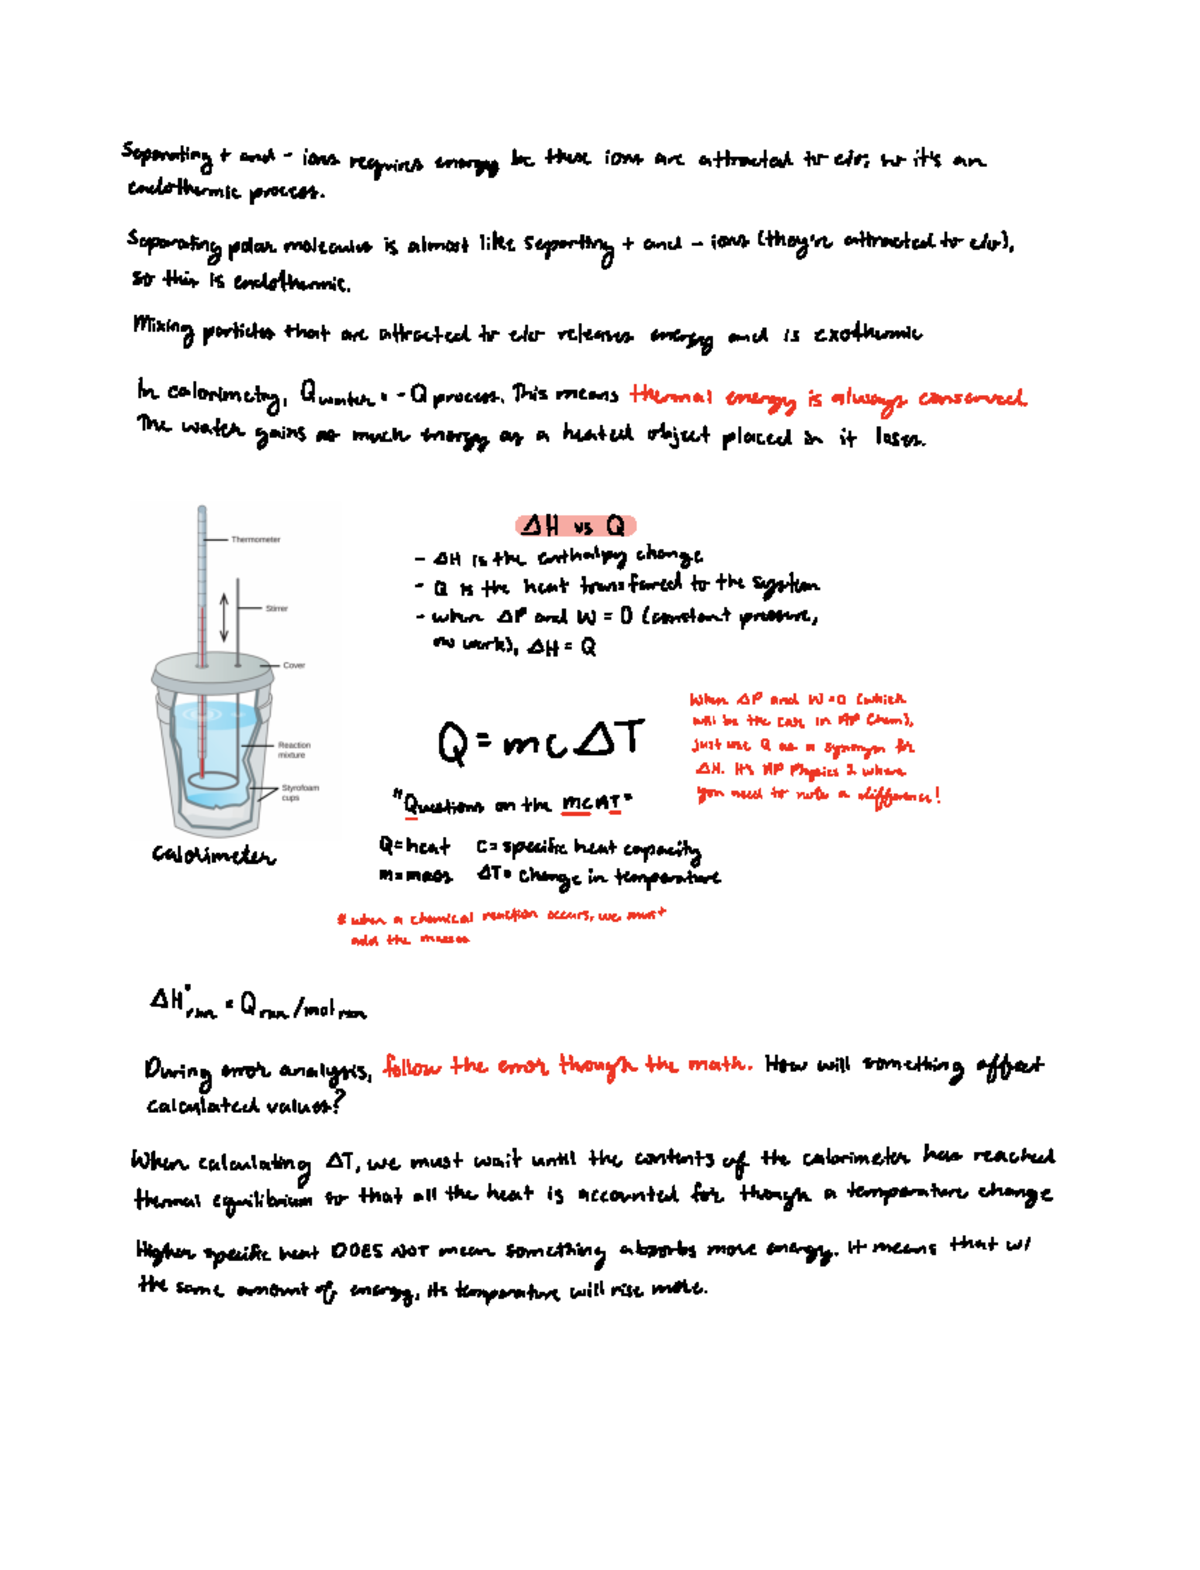 Separating + and - ions requires energy bc these ions are attracted to e/o; so it's an
endothermic process.
Separating polar molecules is almost like separting + and - ions (they're attracted to e/o),
so this is endothermic.
Mixing particles that are attracted to e/o releases energy and is exothermic
In calorimetry, Q water = -Q process. This means thermal energy is always conserved.
The water gains as much energy as a heated object placed in it loses.
Thermometer
Stirrer
Cover
Reaction
mixture
Styrofoam
cups
calorimeter
ΔH vs Q
- ΔH is the enthalpy change
- Q is the heat transfared to the system
- when ΔP and W = 0 (constant pressure,
no work), ΔH = Q
Q = mcΔT
"Questions on the MCAT"
Q = heat c = specific heat capacity
m = mass ΔT = change in temperature
When ΔP and W = 0 (which
will be the case in AP Chem),
just use Q as a synonym for
ΔH. It's AP Physics 2 where
you need to note a difference!
* when a chemical reaction occurs, we must
add the masses
ΔH°rxn = Q rxn / mol rxn
During error analysis, follow the error though the math. How will something affect
calculated values?
When calculating ΔT, we must wait until the contents of the calorimeter has reached
thermal equilibrium so that all the heat is accounted for though a temperature change
Higher specific heat DOES NOT mean something absorbs more energy. It means that w/
the same amount of energy, its temperature will rise more.